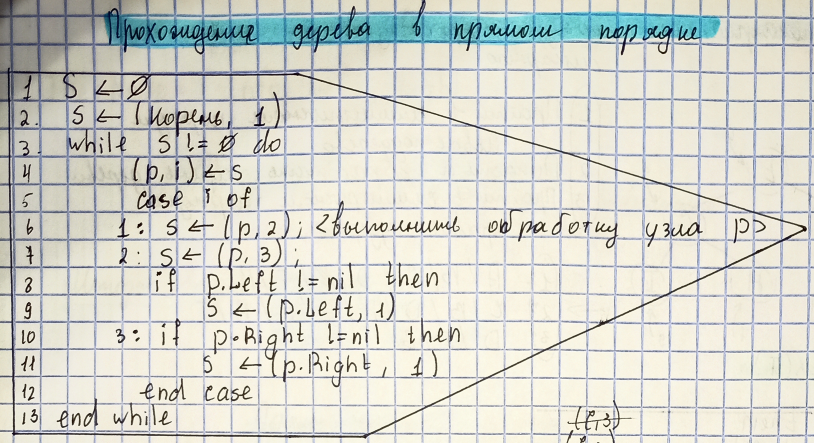 Прохождение дерева в прямом порядке
1 S ← ∅
2. S ← (Корень, 1)
3. while S != ∅ do
4 (p, i) ← S
5 case i of
6 1: S ← (p, 2); <выполнить обработку узла p>
7 2: S ← (p, 3);
8 if p.Left != nil then
9 S ← (p.Left, 1)
10 3: if p.Right != nil then
11 S ← (p.Right, 1)
12 end case
13 end while